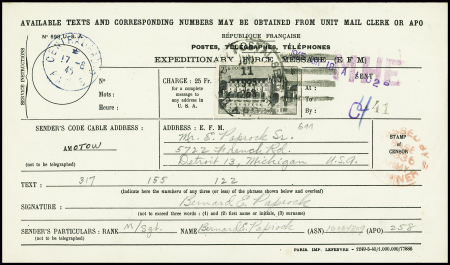 AVAILABLE TEXTS AND CORRESPONDING NUMBERS MAY BE OBTAINED FROM UNIT MAIL CLERK OR APO
RÉPUBLIQUE FRANÇAISE
POSTES, TÉLÉGRAPHES, TÉLÉPHONES
EXPEDITIONARY FORCE MESSAGE (E F M)
SERVICE INSTRUCTIONS
17-8
45
N°
Mots:
Heure:
CHARGE: 25 Fr.
for a complete
message to
any address in
U. S. A.
SENT
At :
To :
By :
41
SENDER'S CODE CABLE ADDRESS:
AMOTOW
(not to be telegraphed)
ADDRESS : E. F. M.
Mr. E. Paprock Sr.
5722 French Rd.
Detroit 13, Michigan U.S.A.
STAMP
of
CENSOR
TEXT : 317 155 122
(Indicate here the numbers of any three (or less) of the phrases shown below and overleaf)
SIGNATURE : Bernard E. Paprock
(not to exceed three words : (1) and (2) first name or initials, (3) surname)
SENDER'S PARTICULARS : RANK M/Sgt. NAME Bernard E. Paprock (ASN) (APO) 258
(not to be telegraphed)
PARIS. IMP. LEFEBVRE